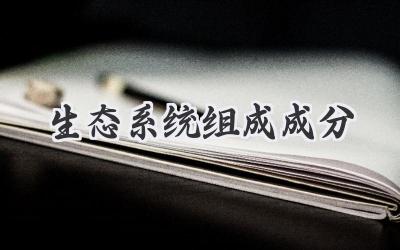 生态系统组成成分